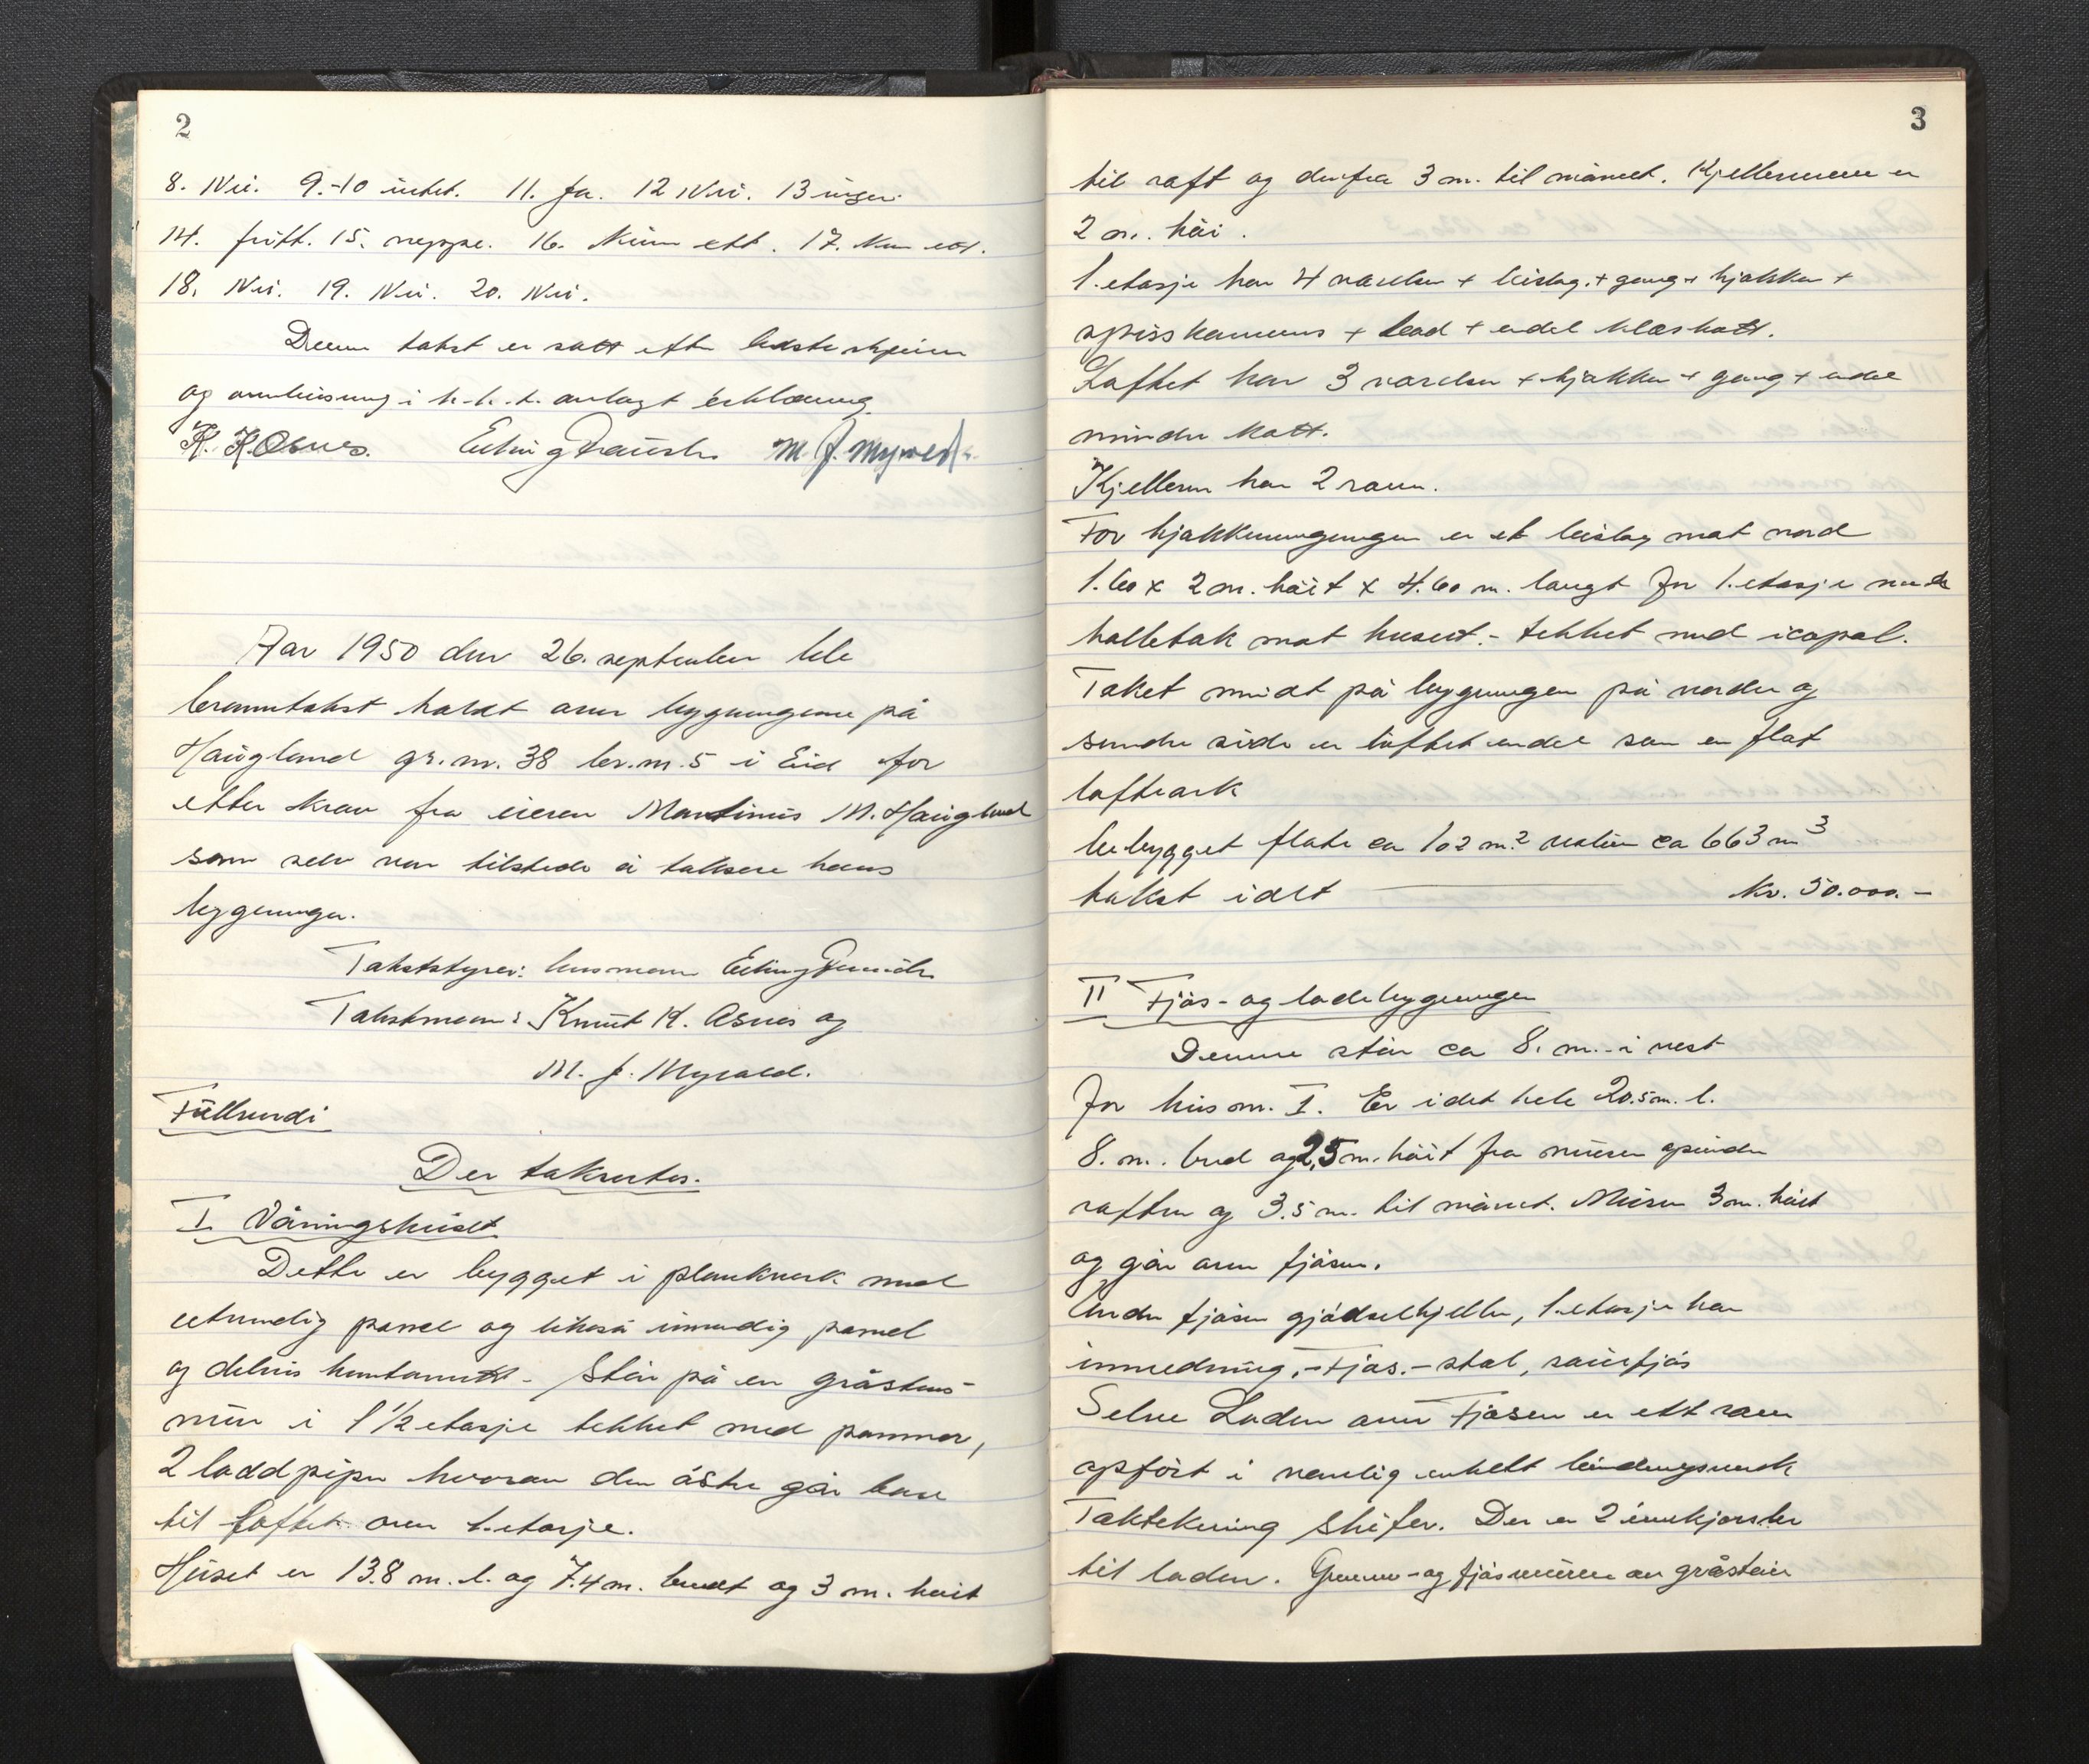 2
8. Nei. 9.-10 intet. 11. Ja. 12 Nei. 13 ingen.
14. fritt. 15. neppe. 16. Kun ett. 17. Kun ett.
18. Nei. 19. Nei. 20. Nei.
Denne takst er satt efter beste skjönn
og overbevisning i h.h.t. avlagt erklæring.
K. K. Osnes. Erling M. J. Myrvold.
Aar 1950 den 26. september ble
branntakst holdt over bygningene på
Haugland gr.nr. 38 br.nr. 5 i Eid for
etter krav fra eieren Martinus M. Haugland
som selv var tilstede å taksere hans
bygninger.
Takststyrer: lensmann Erling
Takstmenn: Knut K. Osnes og
M. J. Myrvold.
Fullmendi
Der takseertes.
I Våningshuset.
Dette er bygget i plankverk med
utvendig panel og likeså innvendig panel
og delvis huntonitt. Står på en gråsteins-
mur i 1 1/2 etasje tekket med panner,
2 ladd piper hvorav den östre går bare
til loftet over 1. etasje.
Huset er 13.8 m. l. og 7.4 m. bredt og 3 m. höit
3
til raft og derfra 3 m. til mönnet. Kjellermuren er
2 m. höi.
1. etasje har 4 værelser + bislag + gang + kjökken +
spisskammers + bad + endel kleskott.
Loftet har 3 værelser + kjökken + gang + endel
mindre kott.
Kjelleren har 2 rom.
For kjökkeninngangen er et bislag mot nord
1.60 x 2 m. höit x 4.60 m. langt for 1. etasje med
halvtak mot huset. - tekket med icopal.
Taket midt på bygningen på nordre og
söndre side er löftet endel som en flat
loftsark
bebygget flate ca 102 m.2 volum ca 663 m3
takst i alt kr. 50.000.-
II Fjös- og ladebygningen
Denne står ca 8. m. i vest
for hus nr. I. Er i det hele 20.5 m. l.
8. m. bred og 2,5 m. höit fra muren opunder
raften og 3.5 m. til mönnet. Muren 3 m. höit
og går over fjösen.
Under fjösen gjödselkjeller, 1. etasje har
innredning, - Fjös. - stal, sauefjös
Selve Laden over Fjösen er ett rom
opfört i vanlig enkelt bindingsverk
Taktekking skifer. Der er 2 innkjörsler
til laden. Grunn- og fjösmurene av gråstein